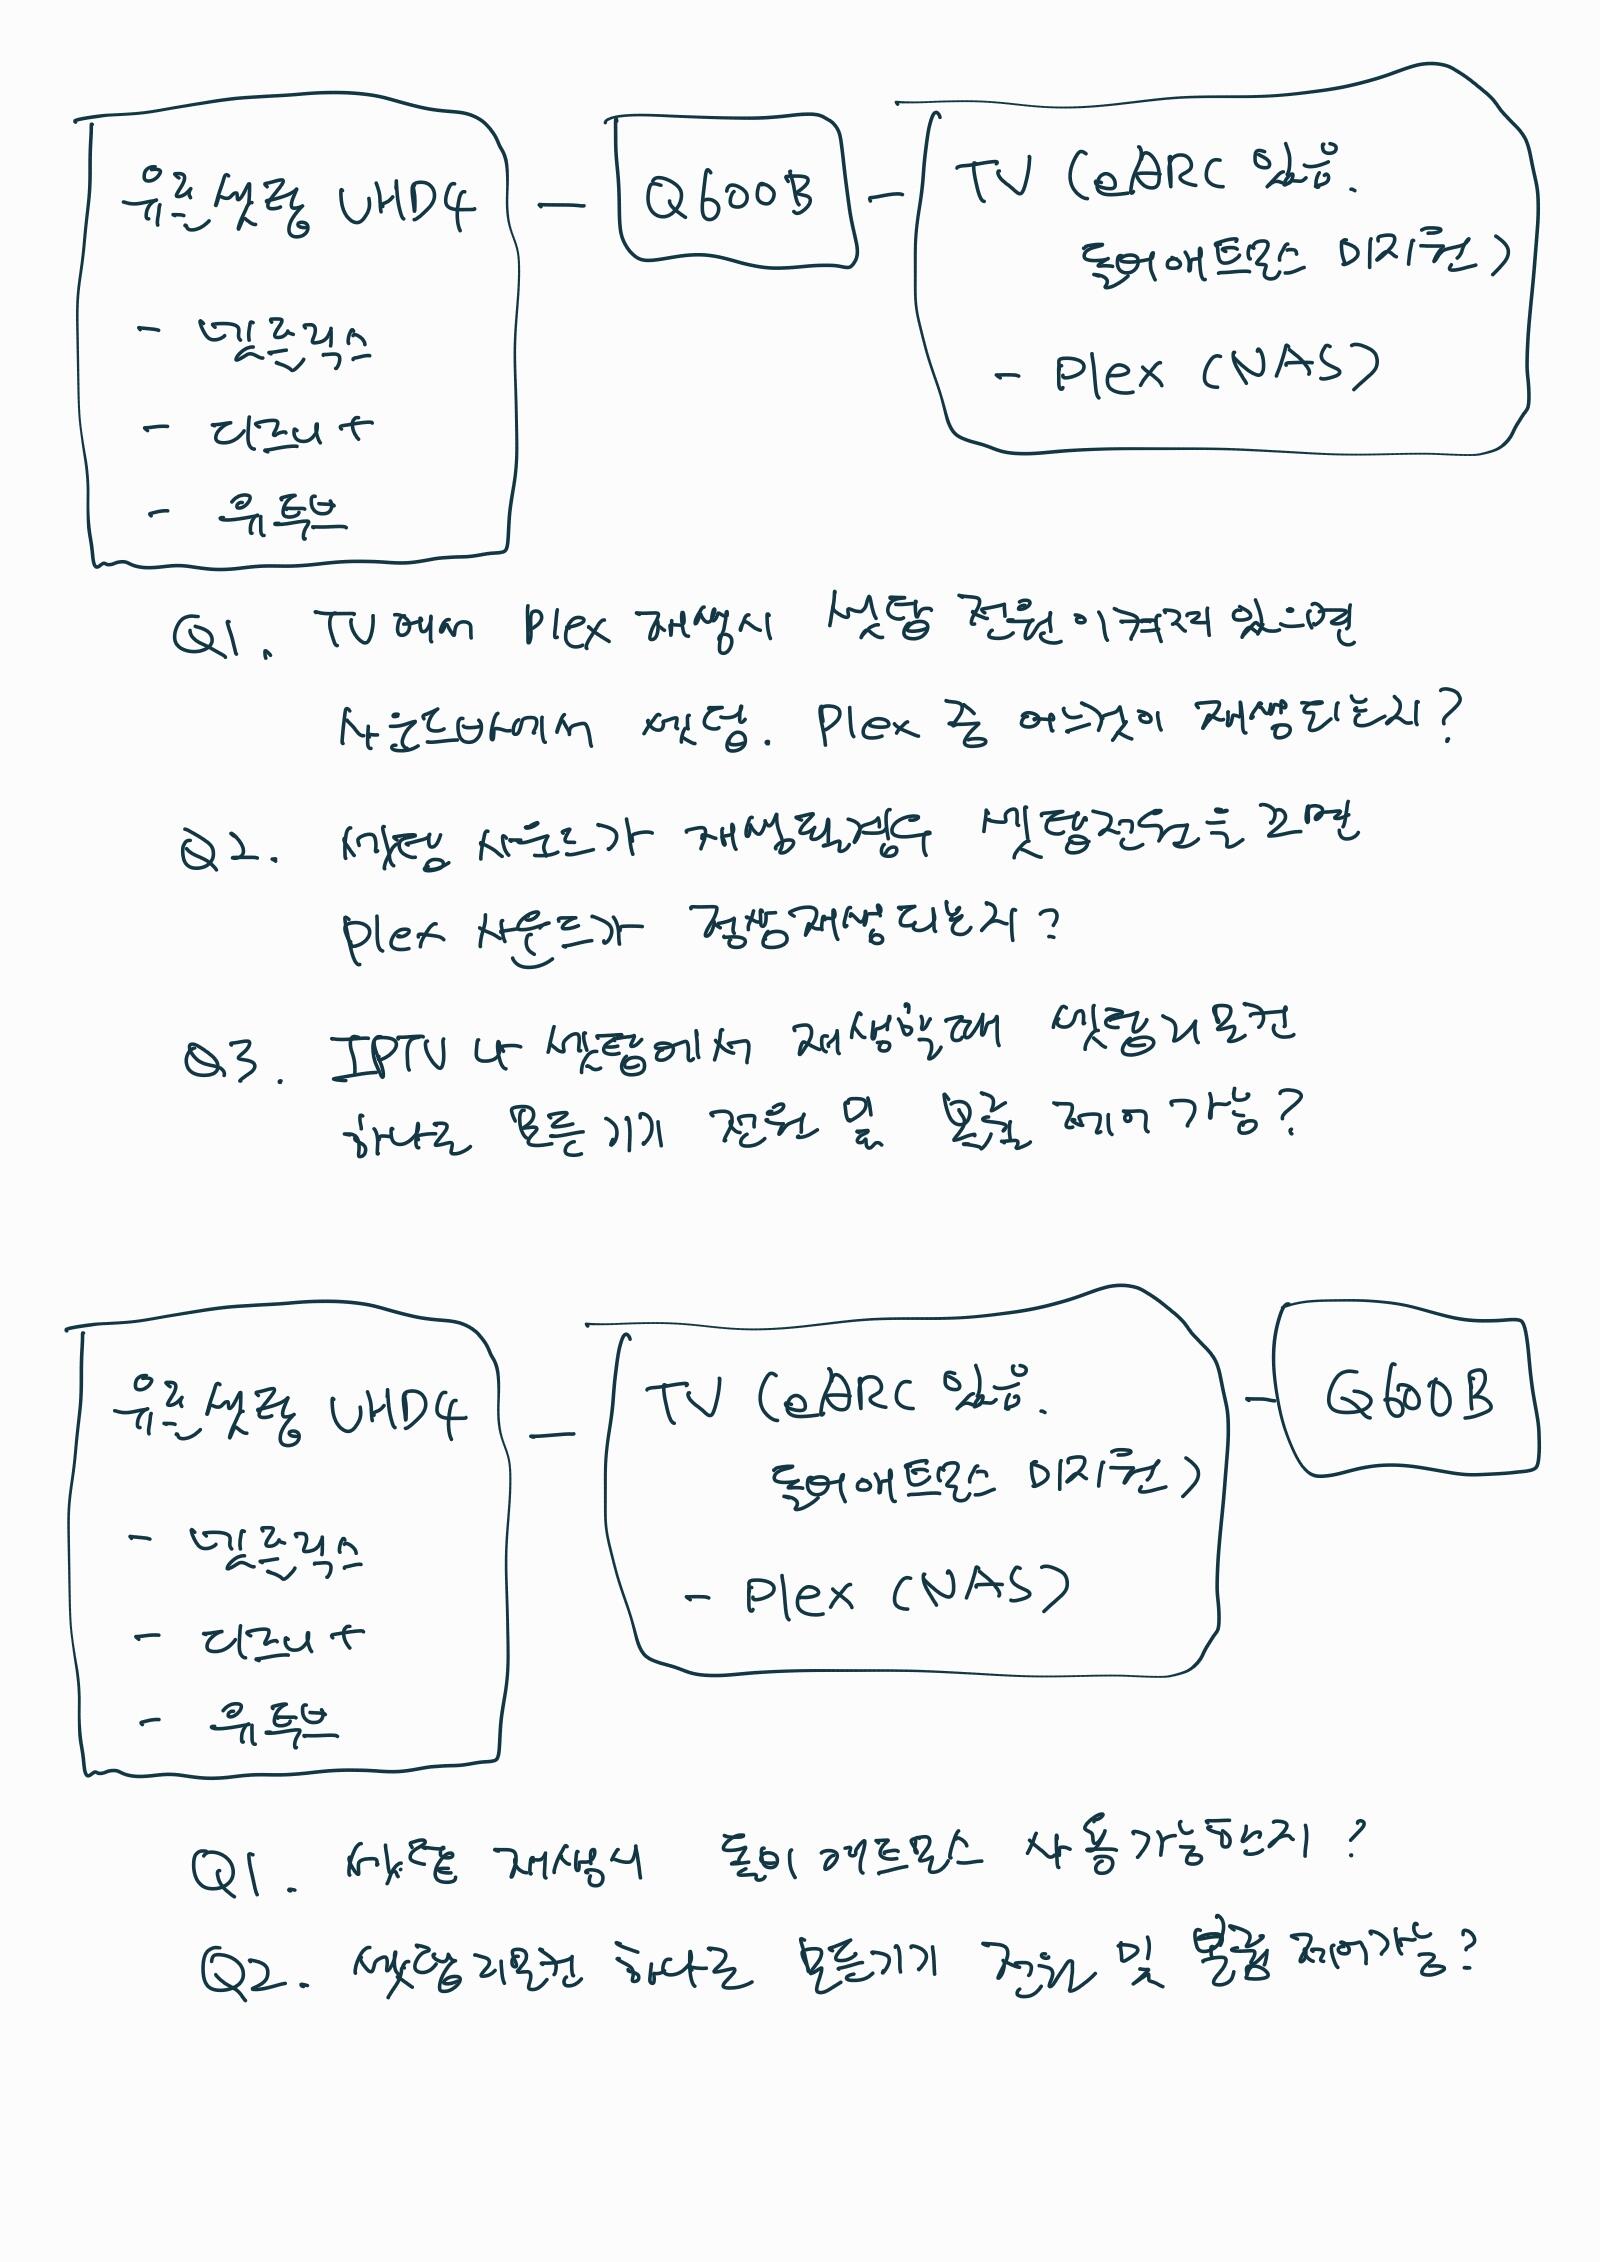 유플셋탑 UHD4
- 넷플릭스
- 디즈니+
- 유튜브
Q600B
TV (eARC 있음.
돌비애트모스 미지원)
- Plex (NAS)
Q1. TV에서 Plex 재생시 셋탑 전원이 켜져 있으면
사운드바에서 셋탑. Plex 중 어느것이 재생되는지?
Q2. 셋탑 사운드가 재생될경우 셋탑전원을 끄면
Plex 사운드가 정상재생되는지?
Q3. IPTV나 셋탑에서 재생할때 셋탑리모컨
하나로 모든기기 전원 및 볼륨 제어 가능?
유플셋탑 UHD4
- 넷플릭스
- 디즈니+
- 유튜브
TV (eARC 있음.
돌비애트모스 미지원)
- Plex (NAS)
Q600B
Q1. 셋탑 재생시 돌비애트모스 사용가능한지?
Q2. 셋탑리모컨 하나로 모든기기 전원 및 볼륨 제어가능?